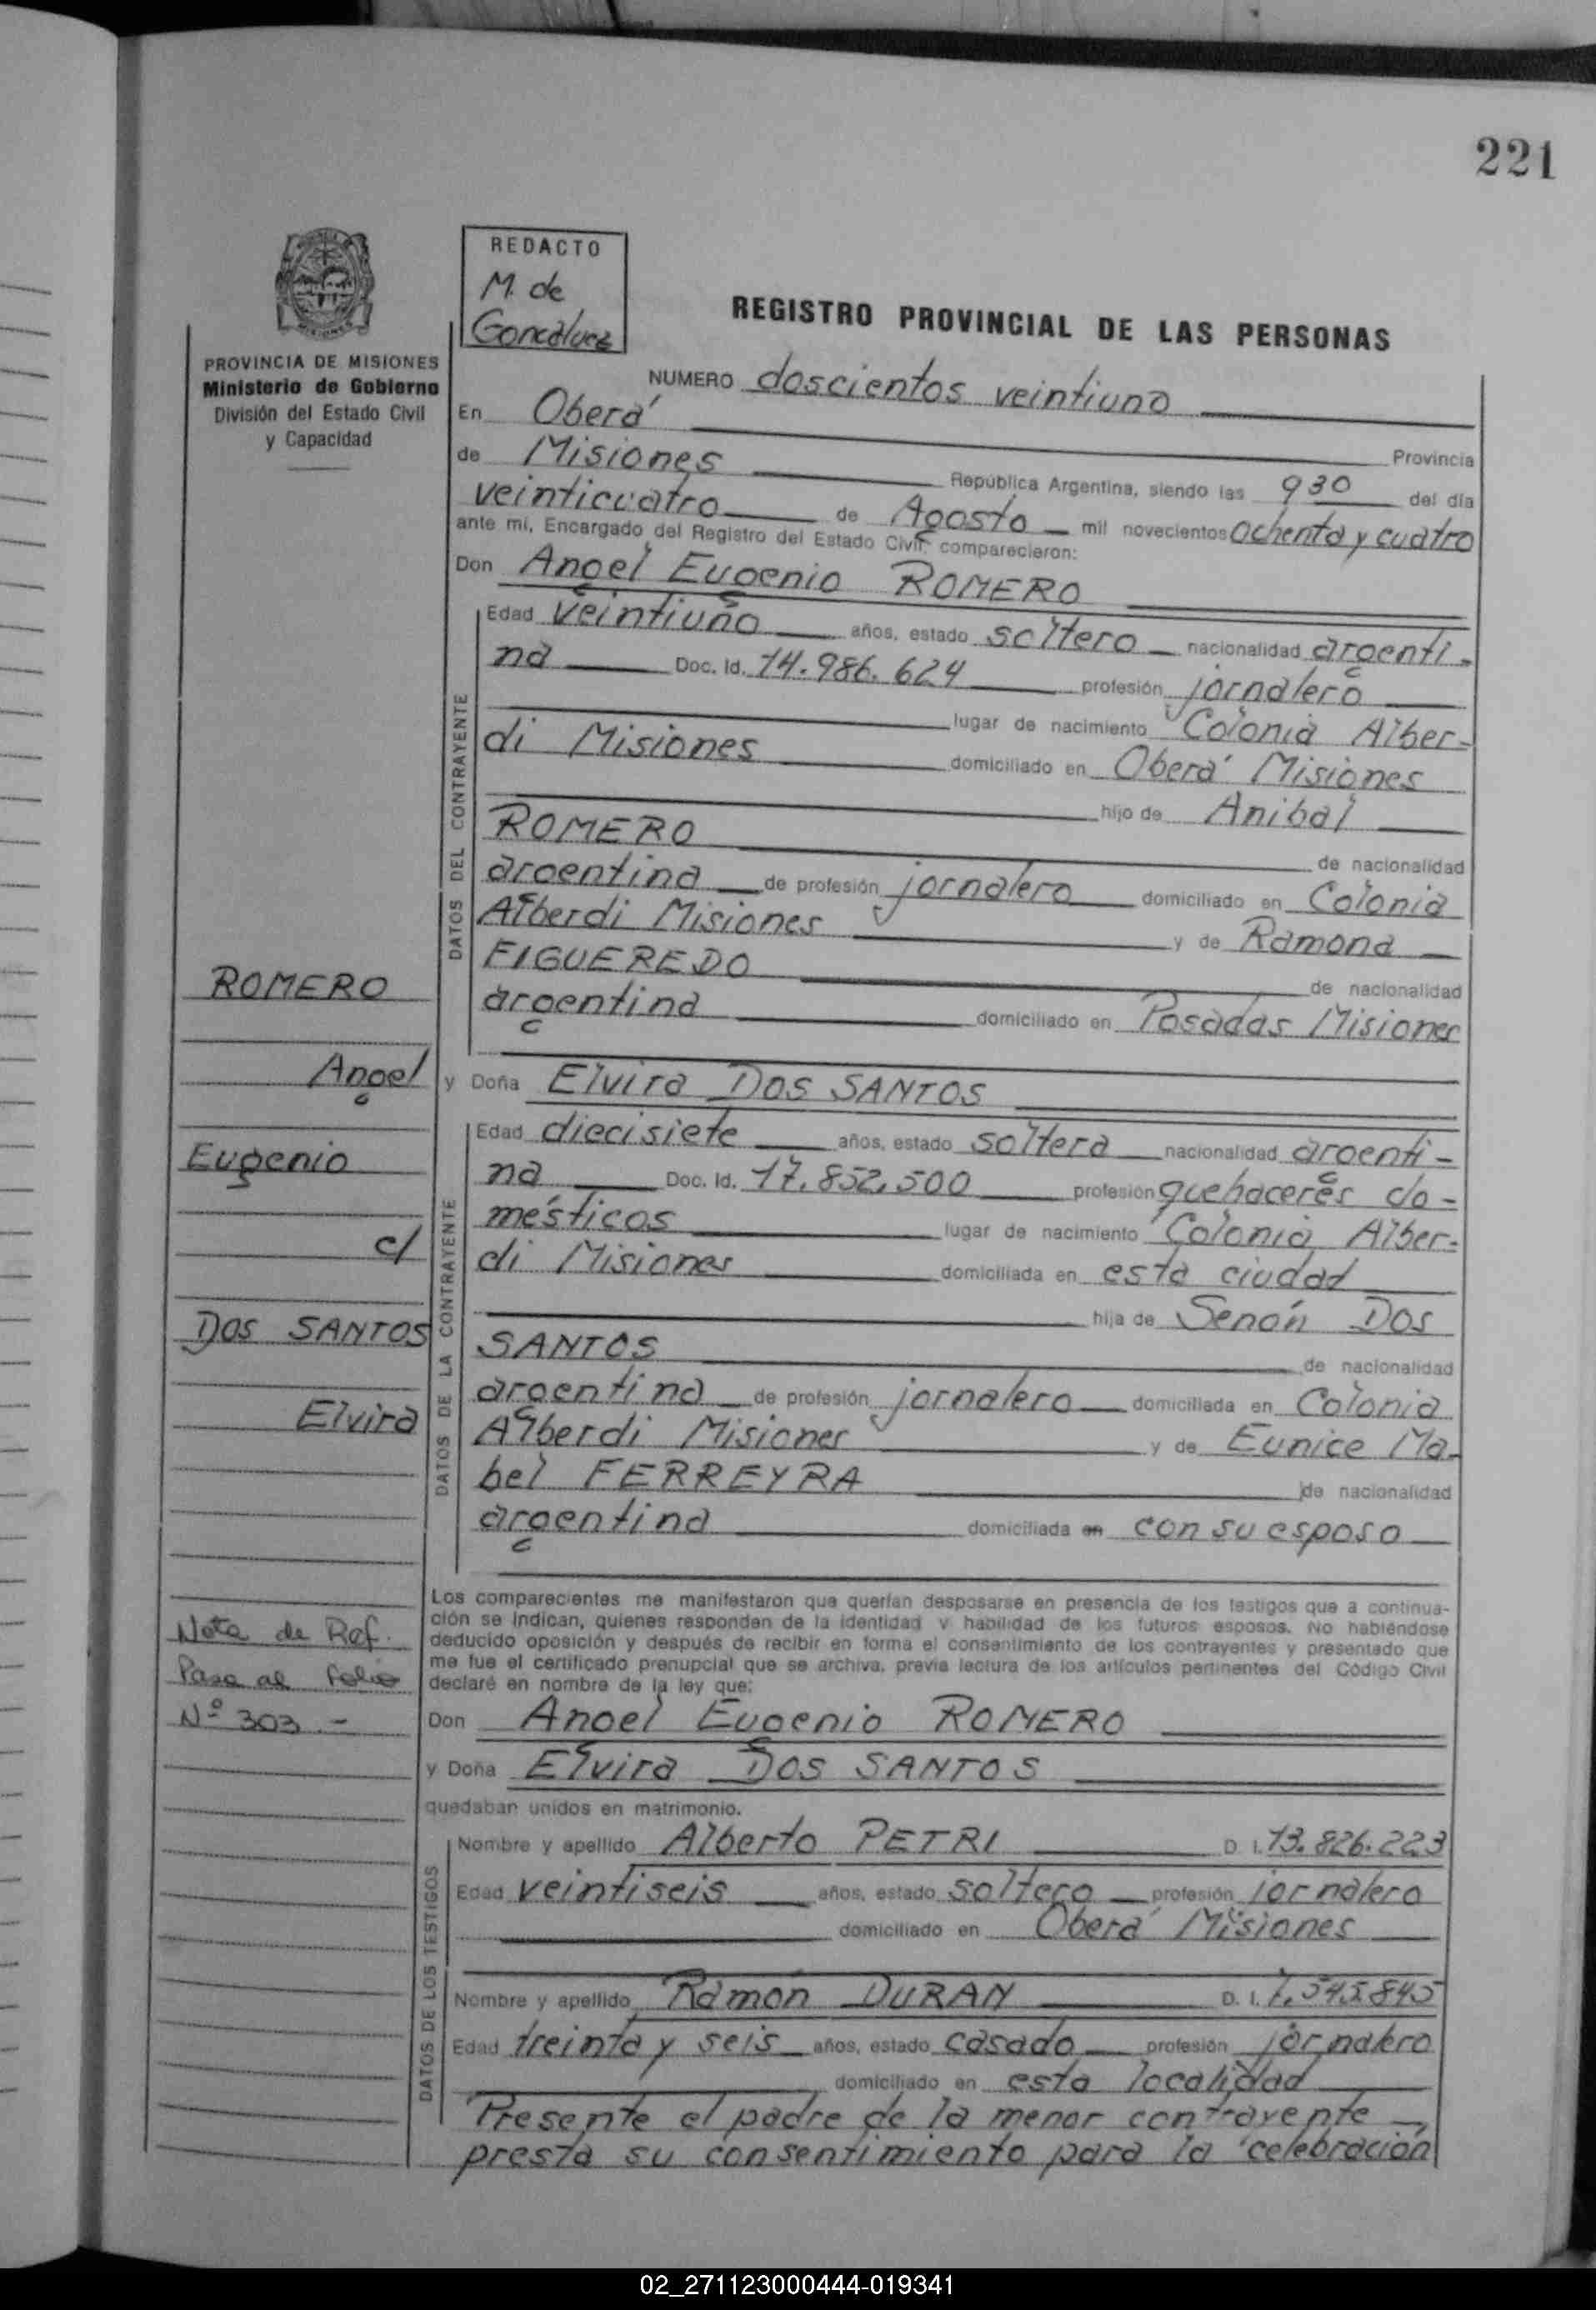 221
REDACTO
M. de
Goncalvez
REGISTRO PROVINCIAL DE LAS PERSONAS
PROVINCIA DE MISIONES
Ministerio de Gobierno
División del Estado Civil
y Capacidad
NUMERO doscientos veintiuno
En Oberá Provincia
de Misiones República Argentina, siendo las 930 del día
veinticuatro de Agosto mil novecientos ochenta y cuatro
ante mí, Encargado del Registro del Estado Civil, comparecieron:
Don Angel Eugenio ROMERO
DATOS DEL CONTRAYENTE
Edad veintiuno años, estado soltero nacionalidad argenti-
na Doc. Id. 14.986.624 profesión jornalero
lugar de nacimiento Colonia Alber-
di Misiones domiciliado en Oberá Misiones
hijo de Anibal
ROMERO de nacionalidad
argentina de profesión jornalero domiciliado en Colonia
Alberdi Misiones y de Ramona
FIGUEREDO de nacionalidad
argentina domiciliado en Posadas Misiones
y Doña Elvira DOS SANTOS
DATOS DE LA CONTRAYENTE
Edad diecisiete años, estado soltera nacionalidad argenti-
na Doc. Id. 17.852.500 profesión quehaceres do-
mésticos lugar de nacimiento Colonia Alber-
di Misiones domiciliada en esta ciudad
hija de Senón DOS
SANTOS de nacionalidad
argentina de profesión jornalero domiciliada en Colonia
Alberdi Misiones y de Eunice Ma-
bel FERREYRA de nacionalidad
argentina domiciliada en con su esposo
ROMERO
Angel
Eugenio
c/
DOS SANTOS
Elvira
Nota de Ref.
Pasa al folio
Nº 303.-
Los comparecientes me manifestaron que querían desposarse en presencia de los testigos que a continua-
ción se indican, quienes responden de la identidad y habilidad de los futuros esposos. No habiéndose
deducido oposición y después de recibir en forma el consentimiento de los contrayentes y presentado que
me fue el certificado prenupcial que se archiva, previa lectura de los artículos pertinentes del Código Civil
declaré en nombre de la ley que:
Don Angel Eugenio ROMERO
y Doña Elvira DOS SANTOS
quedaban unidos en matrimonio.
DATOS DE LOS TESTIGOS
Nombre y apellido Alberto PETRI D. I. 13.826.223
Edad veintiseis años, estado soltero profesión jornalero
domiciliado en Oberá Misiones
Nombre y apellido Ramón DURAN D. I. 7.545.845
Edad treinta y seis años, estado casado profesión jornalero
domiciliado en esta localidad
Presente el padre de la menor contrayente
presta su consentimiento para la celebración
02_271123000444-019341